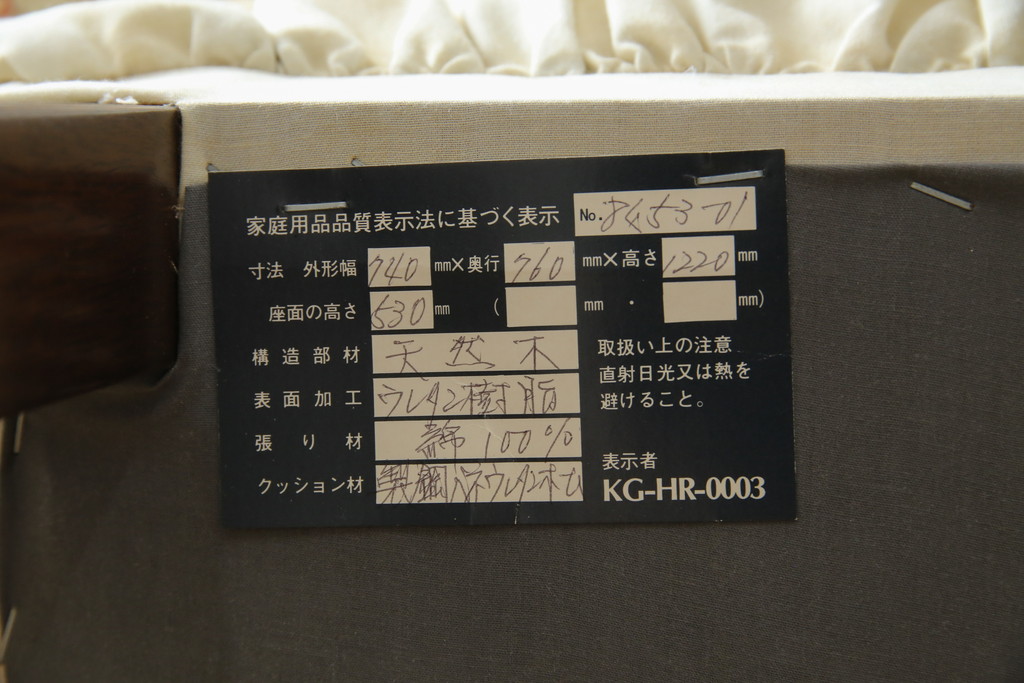 家庭用品品質表示法に基づく表示 No. 8453-01
寸法 外形幅 740 mm×奥行 760 mm×高さ 1220 mm
座面の高さ 530 mm ( mm · mm)
構造部材 天然木
表面加工 ウレタン樹脂
張り材 綿100%
クッション材 鋼製バネウレタンホーム
取扱い上の注意
直射日光又は熱を
避けること。
表示者
KG-HR-0003